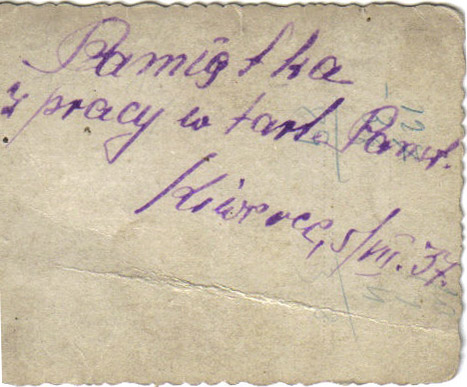 Pamiątka
z pracy w tart. Państ.
Kiwerce, 5/VII. 37.